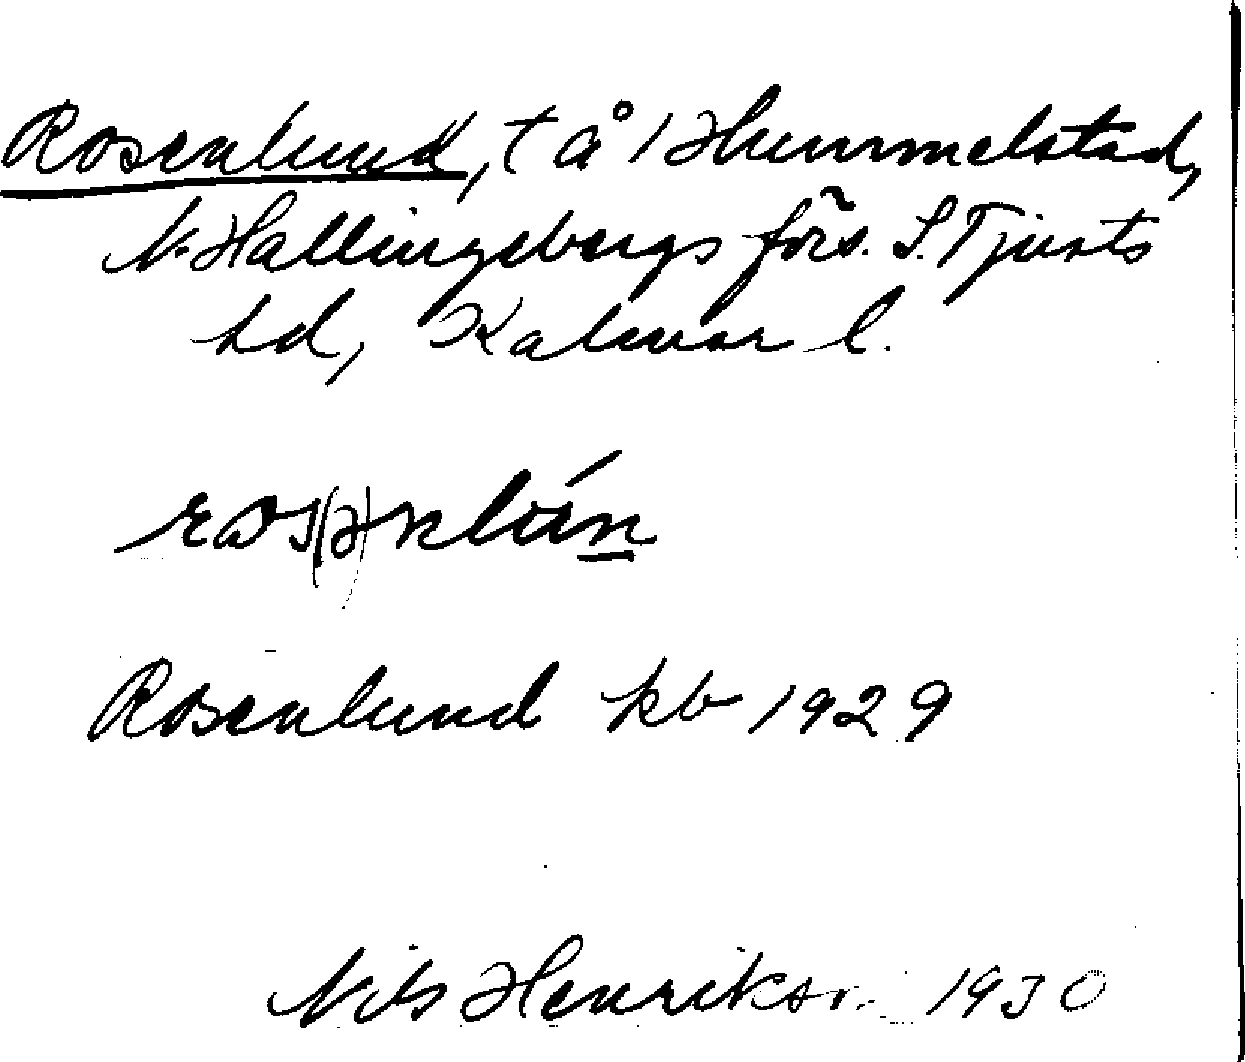 Rosenlund, t å 1 Hummelstad,
V. Hallingebergs förs. S. Tjusts
hd, Kalmar l.
Rosenlund kb 1929
Nils Henrikson 1930